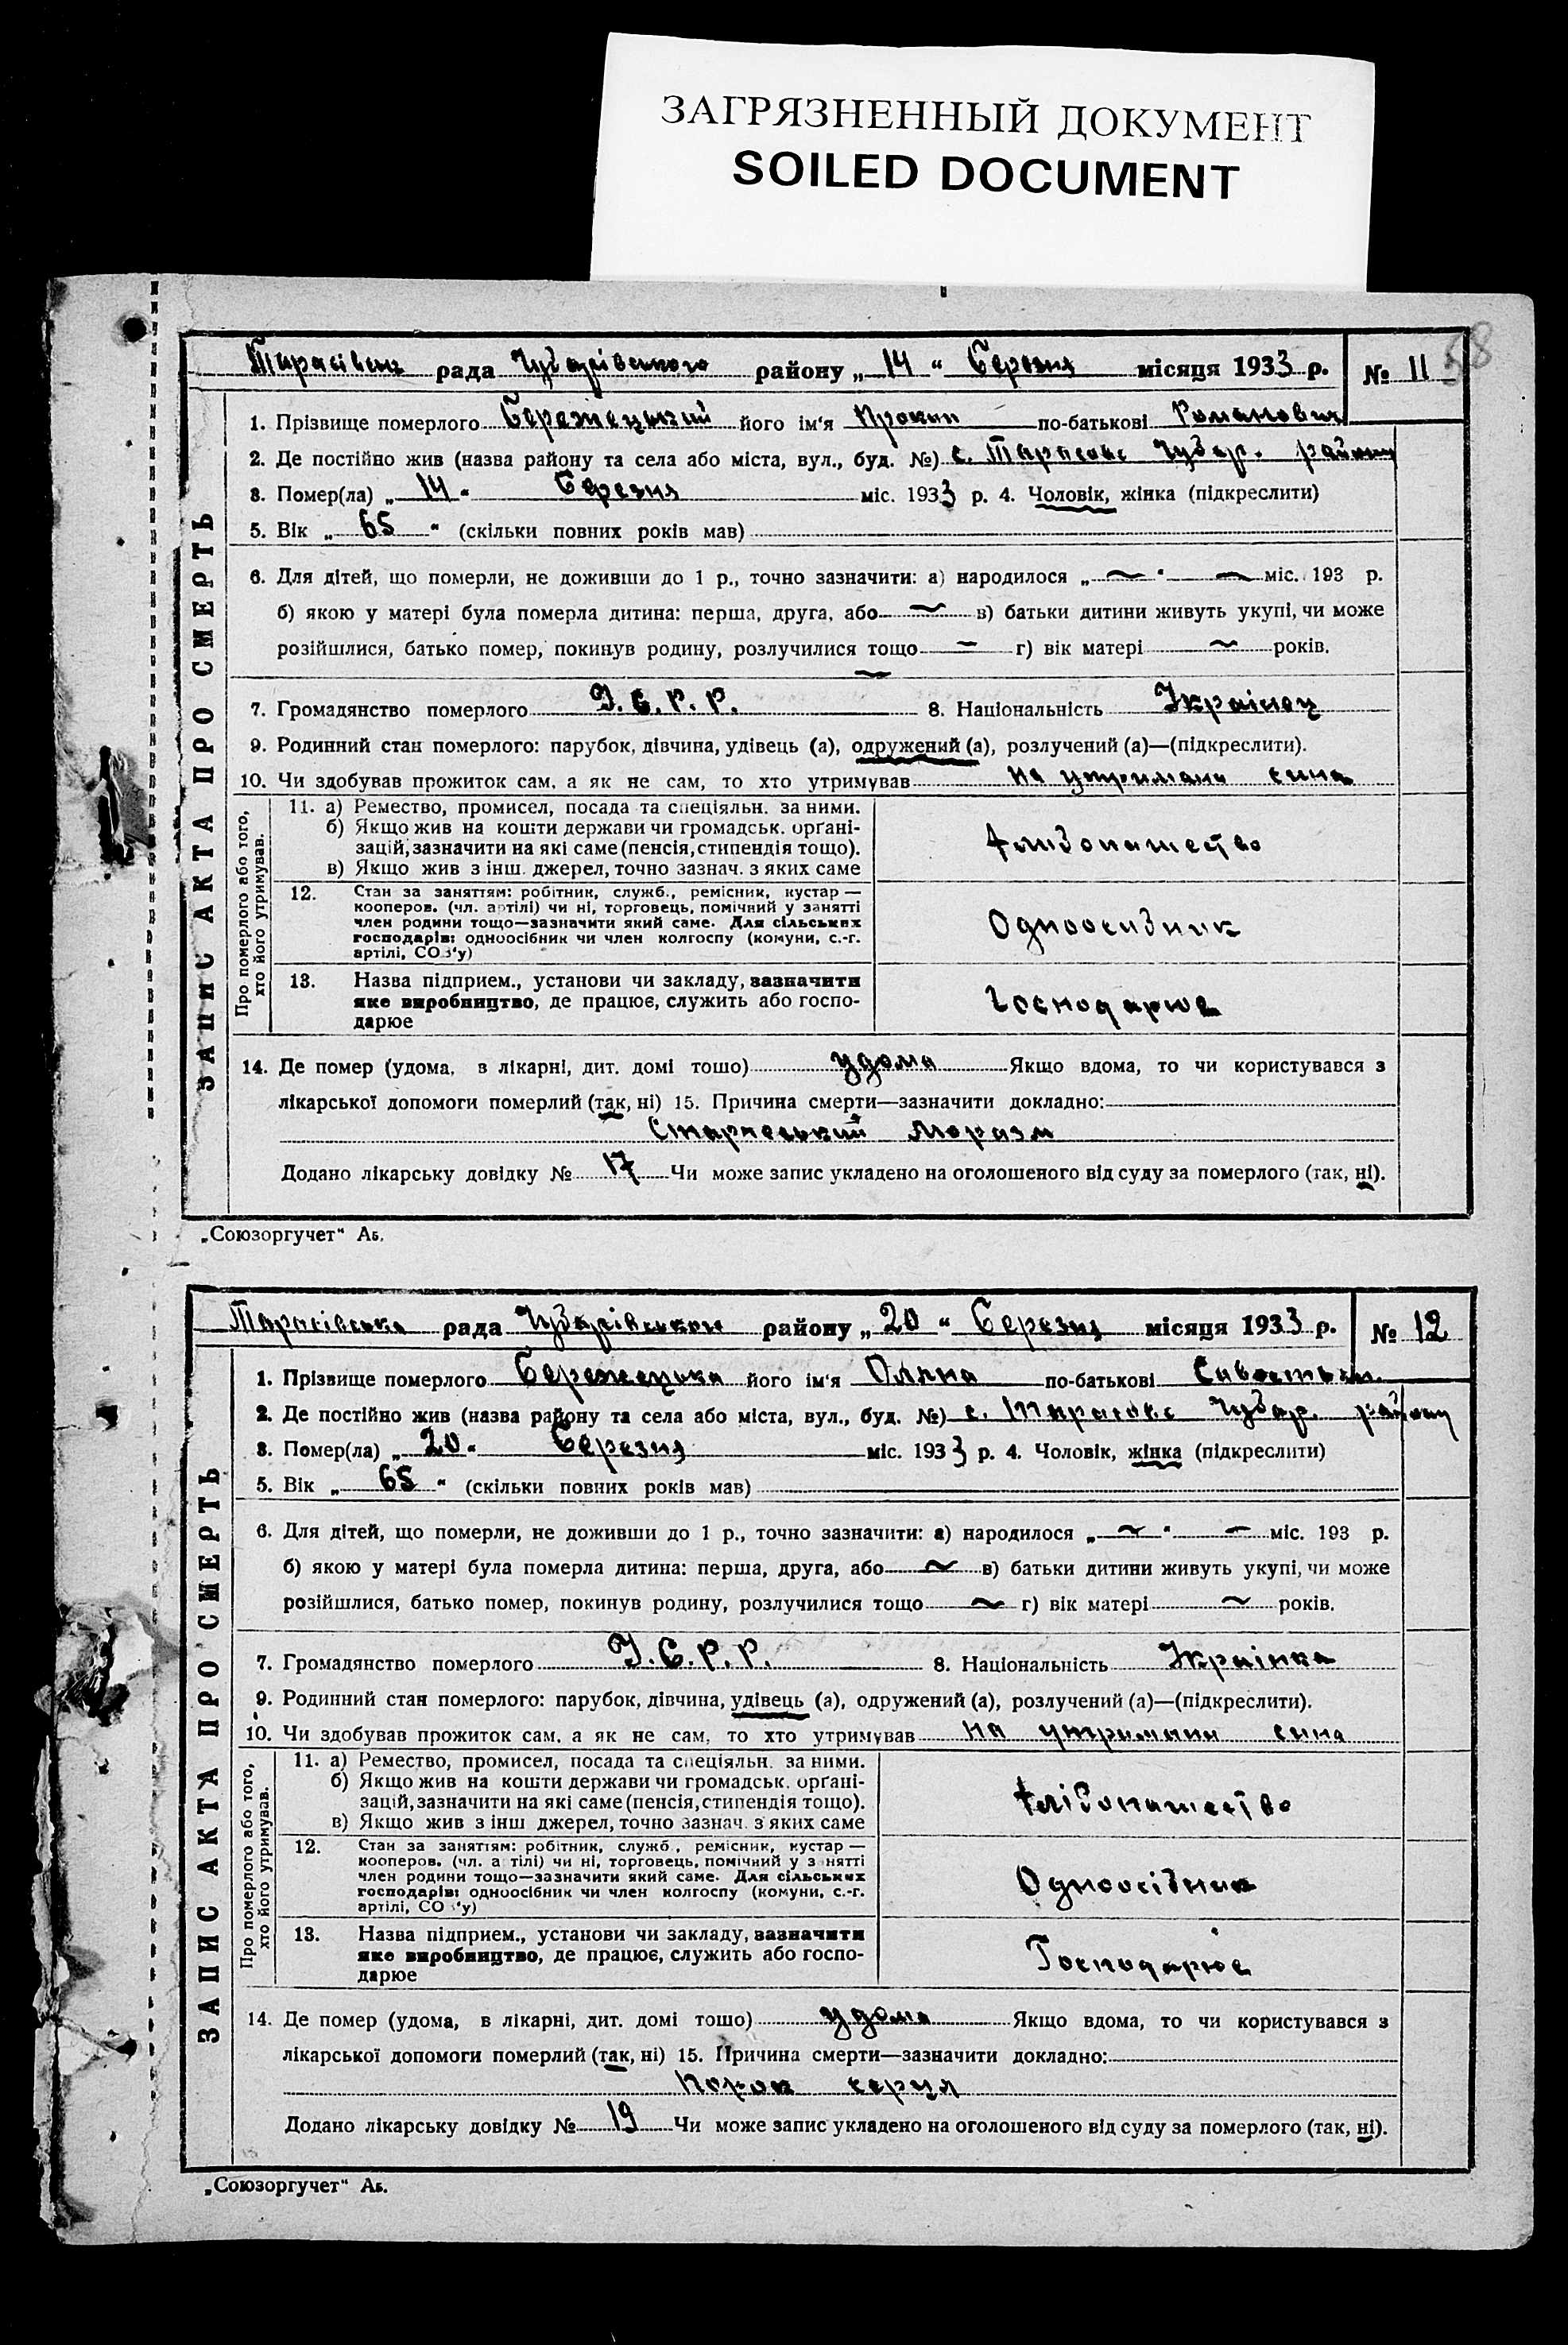 ЗАГРЯЗНЕННЫЙ ДОКУМЕНТ
SOILED DOCUMENT
58
рада Чубарівського району „ 14 “ Березня місяця 1933 р. № 11
ЗАПИС АКТА ПРО СМЕРТЬ
1. Прізвище померлого Бережецький його ім'я Прокип по-батькові Романович
2. Де постійно жив (назва району та села або міста, вул., буд. №) с. Чубар. району
3. Помер(ла) „ 14 “ Березня міс. 1933 р. 4. Чоловік, жінка (підкреслити)
5. Вік „ 65 “ (скільки повних років мав)
6. Для дітей, що померли, не доживши до 1 р., точно зазначити: а) народилося „ ~ “ ~ міс. 193 р.
б) якою у матері була померла дитина: перша, друга, або ~ в) батьки дитини живуть укупі, чи може
розійшлися, батько помер, покинув родину, розлучилися тощо ~ г) вік матері ~ років.
7. Громадянство померлого У.С.Р.Р. 8. Національність Українец
9. Родинний стан померлого: парубок, дівчина, удівець (а), одружений (а), розлучений (а)—(підкреслити).
10. Чи здобував прожиток сам, а як не сам, то хто утримував на утримани сина
Про померлого або того,
хто його утримував.
11. а) Ремество, промисел, посада та спеціяльн. за ними.
б) Якщо жив на кошти держави чи громадськ. орґані-
зацій, зазначити на які саме (пенсія, стипендія тощо).
в) Якщо жив з інш. джерел, точно зазнач. з яких саме
12. Стан за заняттям: робітник, служб., ремісник, кустар —
кооперов. (чл. артілі) чи ні, торговець, помічний у занятті
член родини тощо—зазначити який саме. Для сільських
господарів: одноосібник чи член колгоспу (комуни, с.-г.
артілі, СОЗ'у)
Одноосибник
13. Назва підприєм., установи чи закладу, зазначити
яке виробництво, де працює, служить або госпо-
дарює
Господарює
14. Де помер (удома, в лікарні, дит. домі тощо) удома Якщо вдома, то чи користувався з
лікарської допомоги померлий (так, ні) 15. Причина смерти—зазначити докладно:
Старческий Моразм
Додано лікарську довідку № 17 Чи може запис укладено на оголошеного від суду за померлого (так, ні).
„Союзоргучет“ Аб.
Тарасівська рада району „ 20 “ Березня місяця 1933 р. № 12
ЗАПИС АКТА ПРО СМЕРТЬ
1. Прізвище померлого Бережецька його ім'я Оляна по-батькові
2. Де постійно жив (назва району та села або міста, вул., буд. №) с. Чубар. району
3. Помер(ла) „ 20 “ Березня міс. 1933 р. 4. Чоловік, жінка (підкреслити)
5. Вік „ 65 “ (скільки повних років мав)
6. Для дітей, що померли, не доживши до 1 р., точно зазначити: а) народилося „ ~ “ ~ міс. 193 р.
б) якою у матері була померла дитина: перша, друга, або ~ в) батьки дитини живуть укупі, чи може
розійшлися, батько помер, покинув родину, розлучилися тощо ~ г) вік матері ~ років.
7. Громадянство померлого У.С.Р.Р. 8. Національність Українка
9. Родинний стан померлого: парубок, дівчина, удівець (а), одружений (а), розлучений (а)—(підкреслити).
10. Чи здобував прожиток сам, а як не сам, то хто утримував на утримани сина
Про померлого або того,
хто його утримував.
11. а) Ремество, промисел, посада та спеціяльн. за ними.
б) Якщо жив на кошти держави чи громадськ. орґані-
зацій, зазначити на які саме (пенсія, стипендія тощо).
в) Якщо жив з інш джерел, точно зазнач. з яких саме
12. Стан за заняттям: робітник, служб., ремісник, кустар —
кооперов. (чл. артілі) чи ні, торговець, помічний у занятті
член родини тощо—зазначити який саме. Для сільських
господарів: одноосібник чи член колгоспу (комуни, с.-г.
артілі, СОЗ'у)
Одноосібник
13. Назва підприєм., установи чи закладу, зазначити
яке виробництво, де працює, служить або госпо-
дарює
Господарює
14. Де помер (удома, в лікарні, дит. домі тощо) удома Якщо вдома, то чи користувався з
лікарської допомоги померлий (так, ні) 15. Причина смерти—зазначити докладно:
Порок серця
Додано лікарську довідку № 19 Чи може запис укладено на оголошеного від суду за померлого (так, ні).
„Союзоргучет“ Аб.